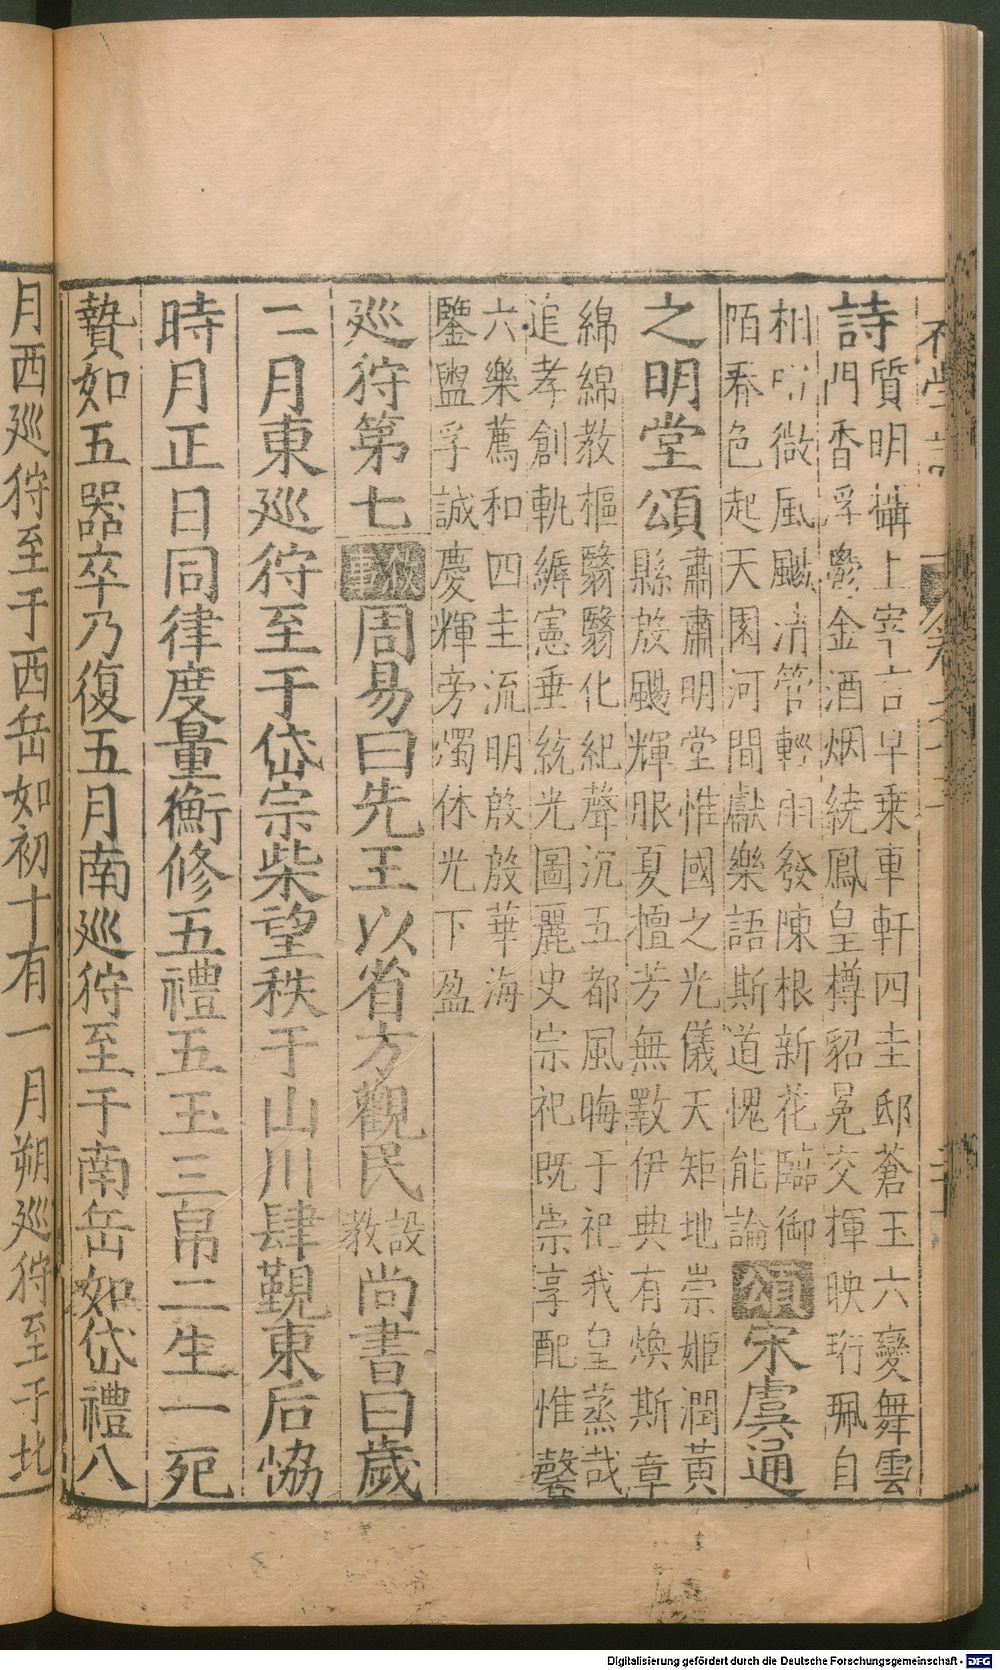 詩
質明 上 早乗車軒四圭邸蒼玉六變舞雲
門香浮 金酒烟繞鳳皇樽貂冕交揮映珩珮自
相 微風飈清管輕 發陳根新花臨御
陌春色起天園河間獻樂語斯道愧能論
頌宋虞通
之明堂頌
肅肅明堂惟國之光儀天矩地崇姬潤黃
縣殷颺輝眼夏擅芳無斁伊典有煥斯章
綿綿教樞翳翳化紀聲沉五都風晦于祀我皇蒸哉
追孝創軌縟憲垂統光圖麗史宗祀既崇享配惟馨
六樂薦和四圭流明殷殷華海
鑒盥孚誠慶輝旁燭休光下盈
巡狩第七
周易曰先王以省方觀民
設
教
尚書曰歲
二月東巡狩至于岱宗柴望秩于山川肆覲東后恊
時月正日同律度量衡修五禮五玉三帛二生一死
贄如五器卒乃復五月南巡狩至于南岳如岱禮八
月西巡狩至于西岳如初十有一月朔巡狩至于北
Digitalisierung gefördert durch die Deutsche Forschungsgemeinschaft - DFG